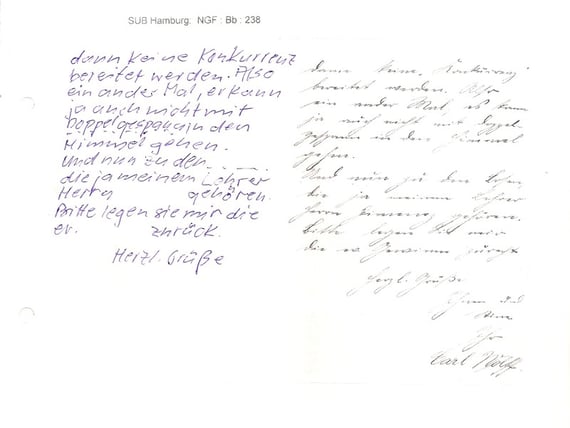 SUB Hamburg: NGF : Bb : 238
dann keine Konkurrenz
bereitet werden. Also
ein ander Mal, er kann
ja auch nicht mit
Doppelgespann in den
Himmel gehen.
Und nun zu den
die ja meinem Lehrer
Herrn gehören.
Bitte legen sie mir die
ev. zurück.
Herzl. Grüße
dann keine Konkurrenz
bereitet werden. Also
ein ander Mal, es kann
ja auch nicht mit Doppel-
gespann in den Himmel
gehen.
Und nun zu den
die ja meinem Lehrer
Herrn gehören.
Bitte legen Sie mir
die ev Gewinne zurück
Herzl. Grüße
Ihnen und
Ihr
Carl Wolff.